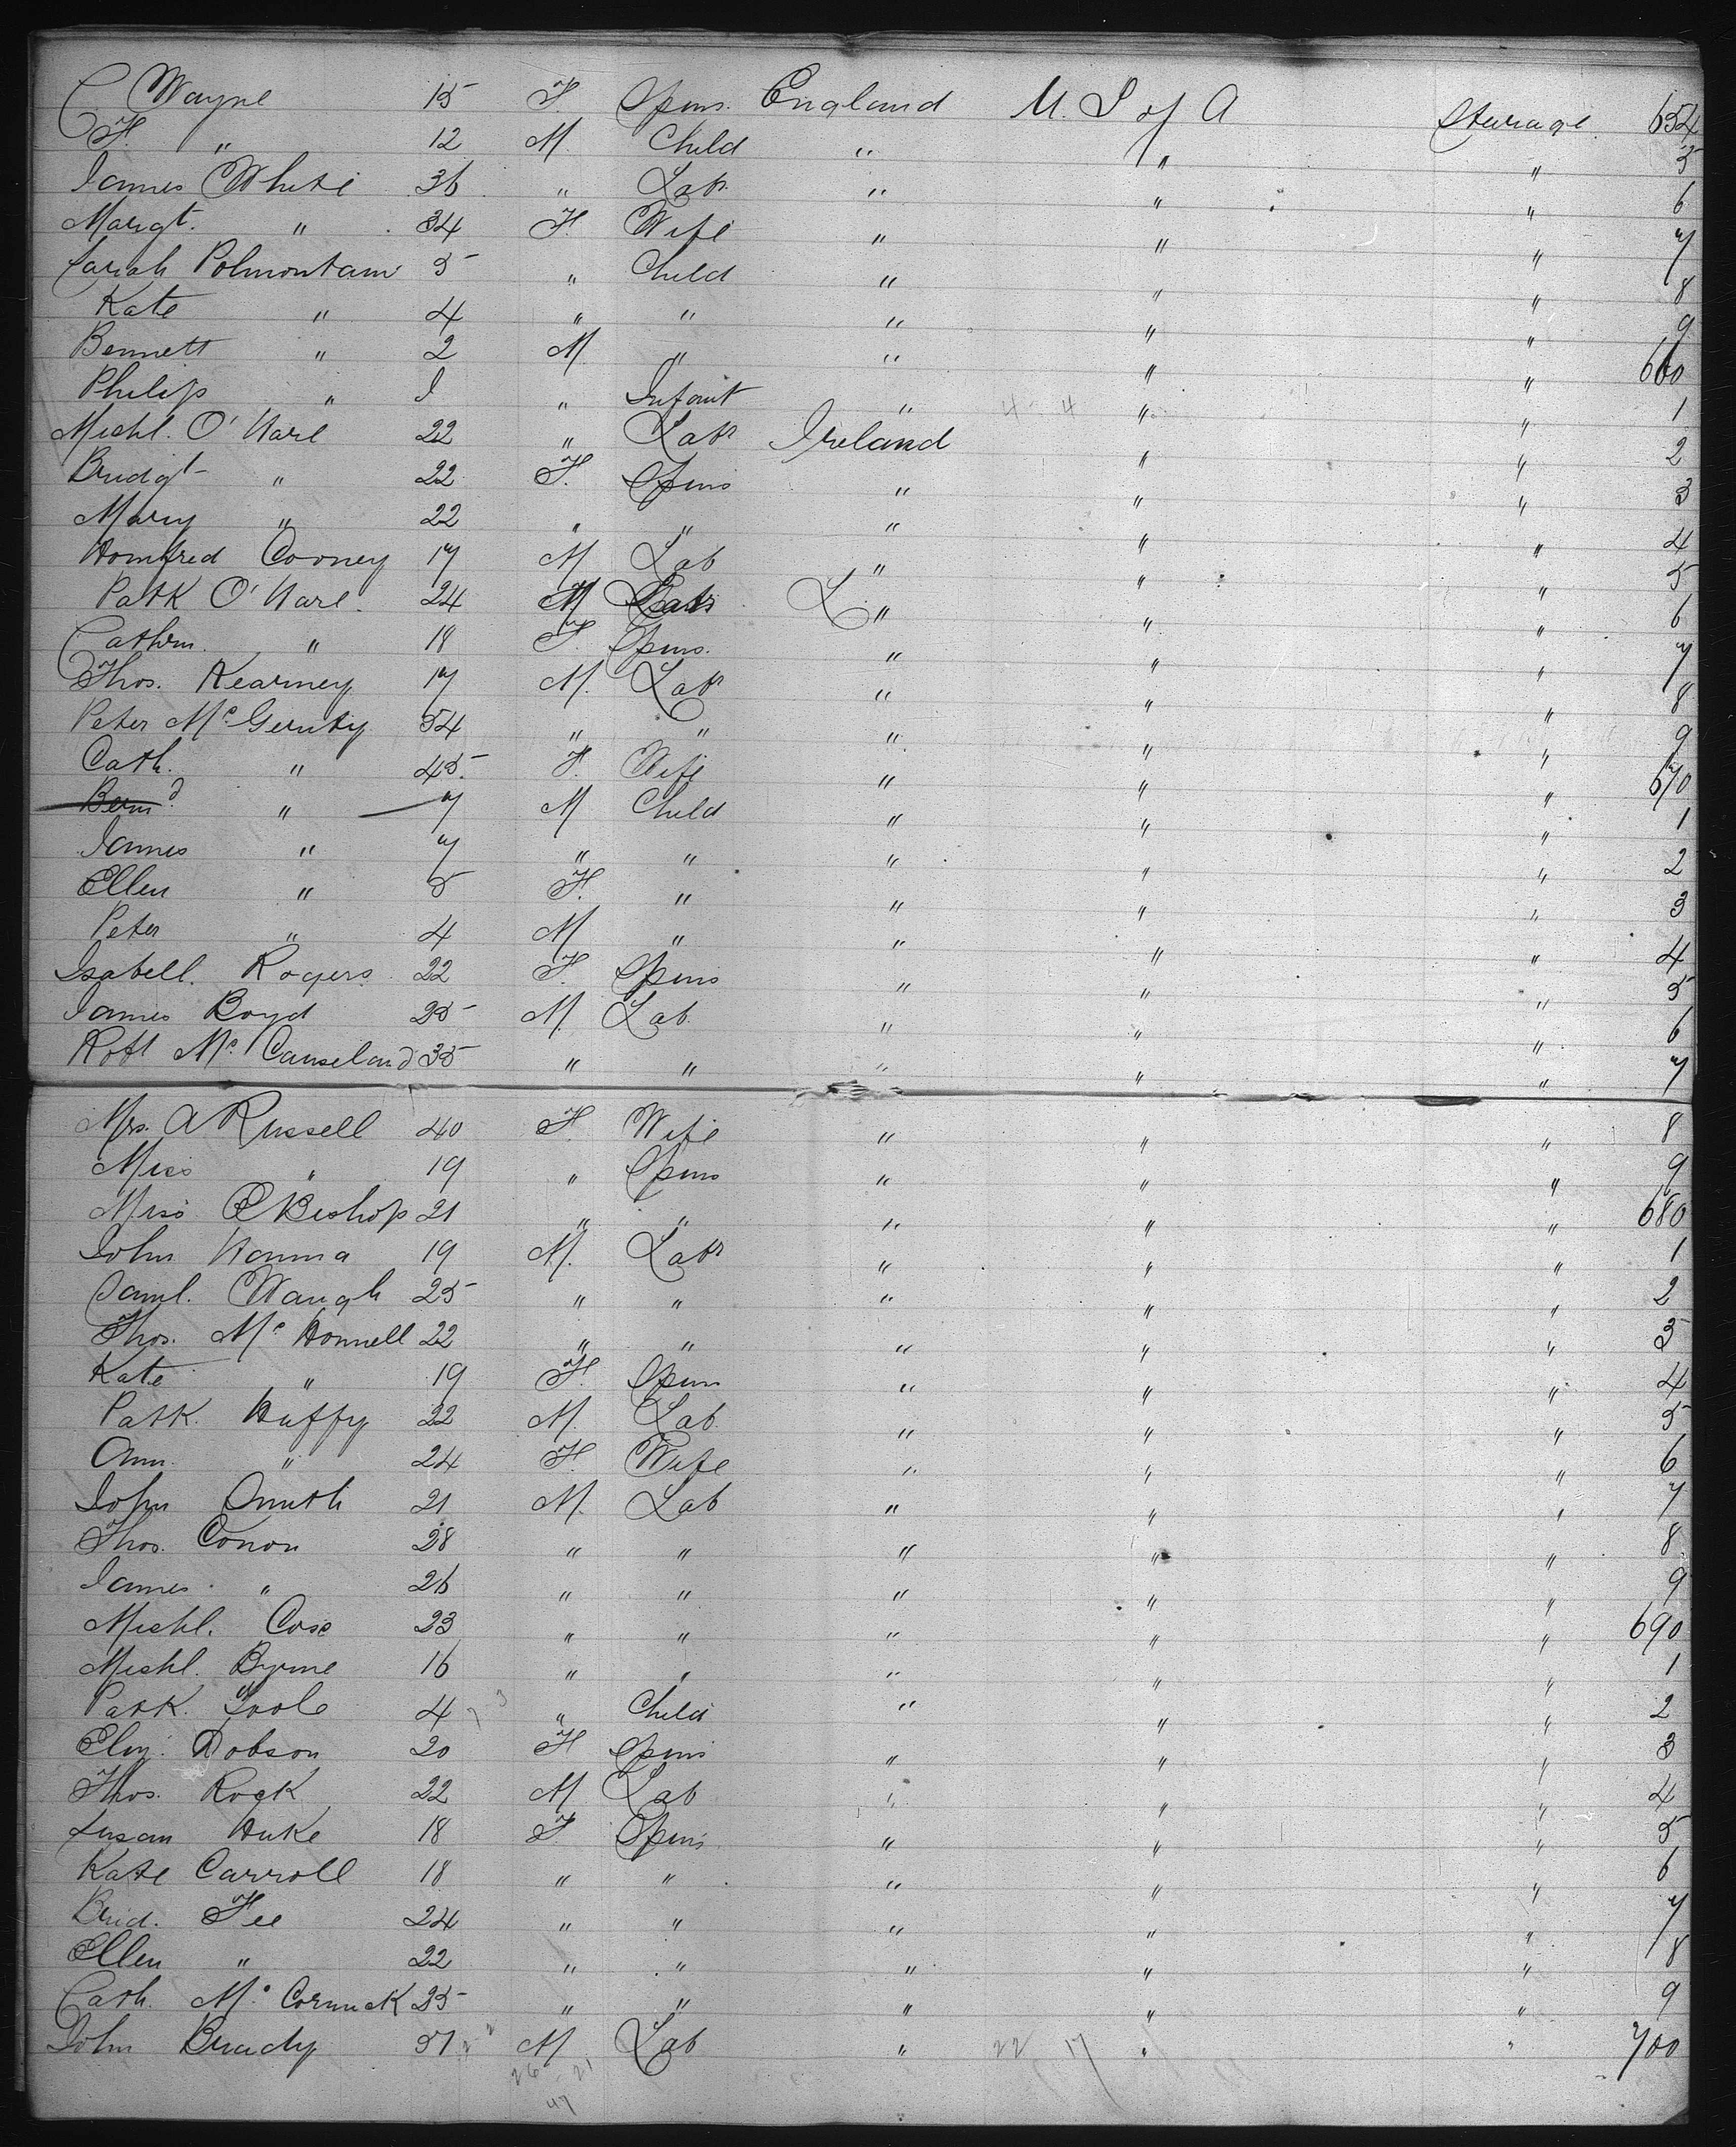 C Wayne 15 F. Spins. England U. S of A Steerage. 654
F. " 12 M. Child " " " 5
James White 36 " Labr " " " 6
Margt. " 34 F. Wife " " " 7
Sarah Polmontam 5 " Child " " " 8
Kate " 4 " " " " " 9
Bennett " 2 M. " " " " 660
Philip " 1 " Infant " 4 - 4 " " 1
Michl. O'Hare 22 " Labr Ireland " " 2
Bridgt " 22 F. Spins " " " 3
Mary " 22 " " " " " 4
Cooney 17 M Lab " " " 5
Patk O'Hare. 24 M Labr " " " 6
Cathrn. " 18 F. Spins. " " " 7
Thos. Kearney 17 M. Labr " " " 8
Peter Mc Gernty 54 " " " " " 9
Cath. " 45. F. Wife " " " 670
Bernd. " 7 M Child " " " 1
James " 7 " " " " " 2
Ellen " 5 F. " " " " 3
Peter " 4 M " " " " 4
Isabell. Rogers 22 F. Spins " " " 5
James Boyd 25 M. Lab. " " " 6
Robt Mc Causeland 35 " " " " " 7
Mrs. A Russell 40 F. Wife " " " 8
Miss " 19 " Spins " " " 9
Miss E Bishop 21 " " " " " 680
John Hanna 19 M. Labr " " " 1
Saml. Waugh 25 " " " " " 2
Thos. Mc Donnell 22 " " " " " 3
Kate " 19 F. Spins " " " 4
Patk. Duffy 22 M. Lab. " " " 5
Ann. " 24 F. Wife " " " 6
John Smith 21 M. Lab " " " 7
Thos. Conon 28 " " " " " 8
James " 26 " " " " " 9
Michl. 23 " " " " " 690
Michl. Byrne 16 " " " " " 1
Patk. Toole 4 " Child " " " 2
Eliz. Dobson 20 F Spins " " " 3
Thos. Rock 22 M Lab " " " 4
Susan Duke 18 F Spins " " " 5
Kate Carroll 18 " " " " " 6
Brid. Fee 24 " " " " " 7
Ellen " 22 " " " " " 8
Cath. Mc Cormick 25 " " " " " 9
John Brady 37 M Lab " 22 17 " " 700
26 - 21
47